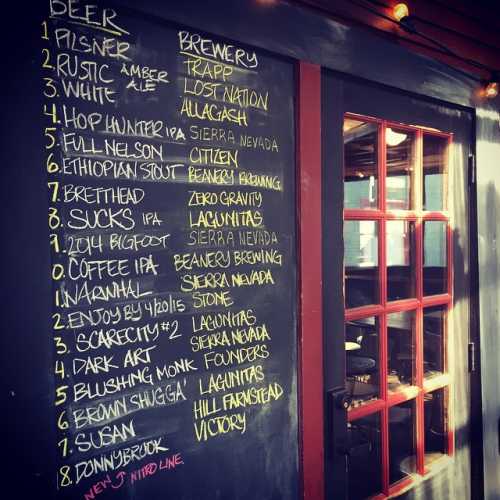 BEER BREWERY
1 PILSNER TRAPP
2. RUSTIC AMBER ALE LOST NATION
3. WHITE ALLAGASH
4. HOP HUNTER IPA SIERRA NEVADA
5. FULL NELSON CITIZEN
6. ETHIOPIAN STOUT BEANERY BREWING
7. BRETTHEAD ZERO GRAVITY
8. SUCKS IPA LAGUNITAS
9. 2014 BIGFOOT SIERRA NEVADA
0. COFFEE IPA BEANERY BREWING
1. NARWHAL SIERRA NEVADA
2. ENJOY BY 4/20/15 STONE
3. SCARECITY #2 LAGUNITAS
4. DARK ART SIERRA NEVADA
5 BLUSHING MONK FOUNDERS
6 BROWN SHUGGA' LAGUNITAS
7. SUSAN HILL FARMSTEAD
8. DONNYBROOK VICTORY
NEW NITRO LINE